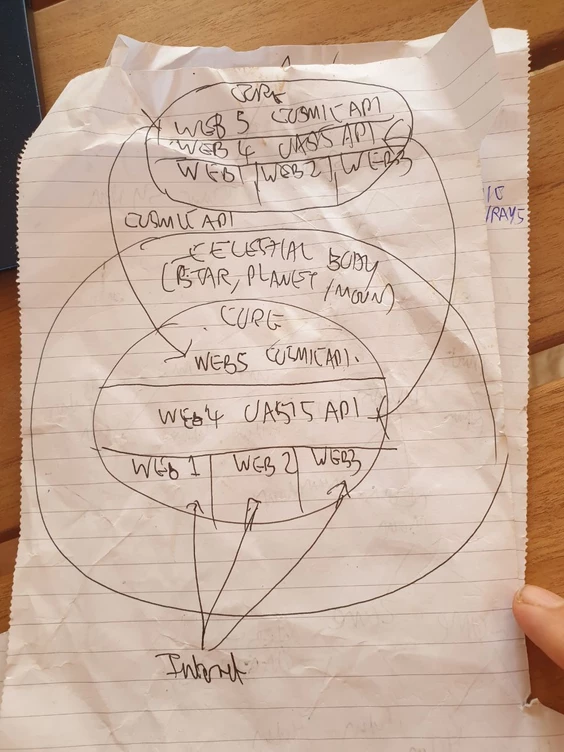 CORE
WEB 5 COSMIC API
WEB 4 OASIS API
WEB 1 WEB 2 WEB3
COSMIC API
CELESTIAL BODY
(STAR, PLANET / MOON)
CORE
WEB5 COSMIC API.
WEB4 OASIS API
WEB 1 WEB 2 WEB3
Internet
IC
/RAYS